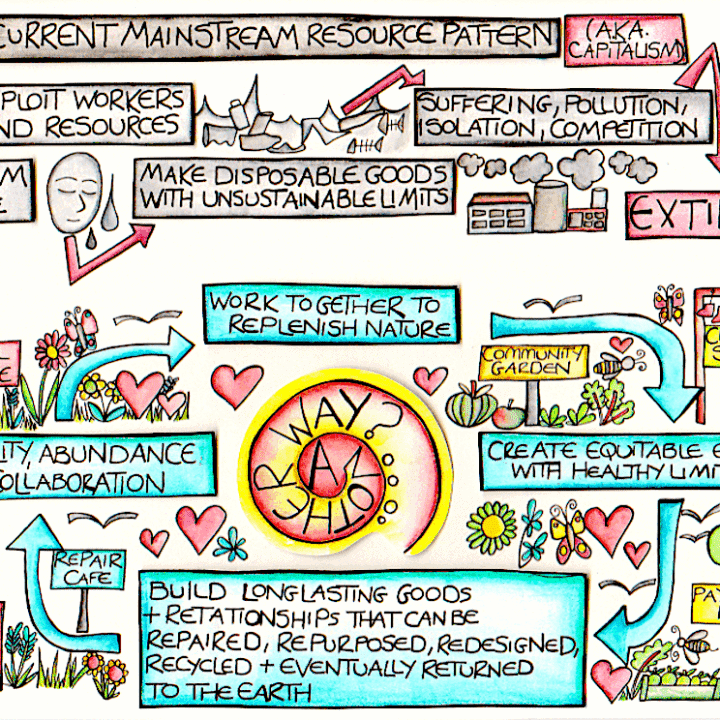 CURRENT MAINSTREAM RESOURCE PATTERN
(A.K.A. CAPITALISM)
PLOIT WORKERS
ND RESOURCES
SUFFERING, POLLUTION,
ISOLATION, COMPETITION
M
E
MAKE DISPOSABLE GOODS
WITH UNSUSTAINABLE LIMITS
EXTI
WORK TOGETHER TO
REPLENISH NATURE
COMMUNITY
GARDEN
A NOTHER WAY?
ITY, ABUNDANCE
OLLABORATION
CREATE EQUITABLE E
WITH HEALTHY LIMIT
REPAIR
CAFE
BUILD LONGLASTING GOODS
+ RETATIONSHIPS THAT CAN BE
REPAIRED, REPURPOSED, REDESIGNED,
RECYCLED + EVENTUALLY RETURNED
TO THE EARTH